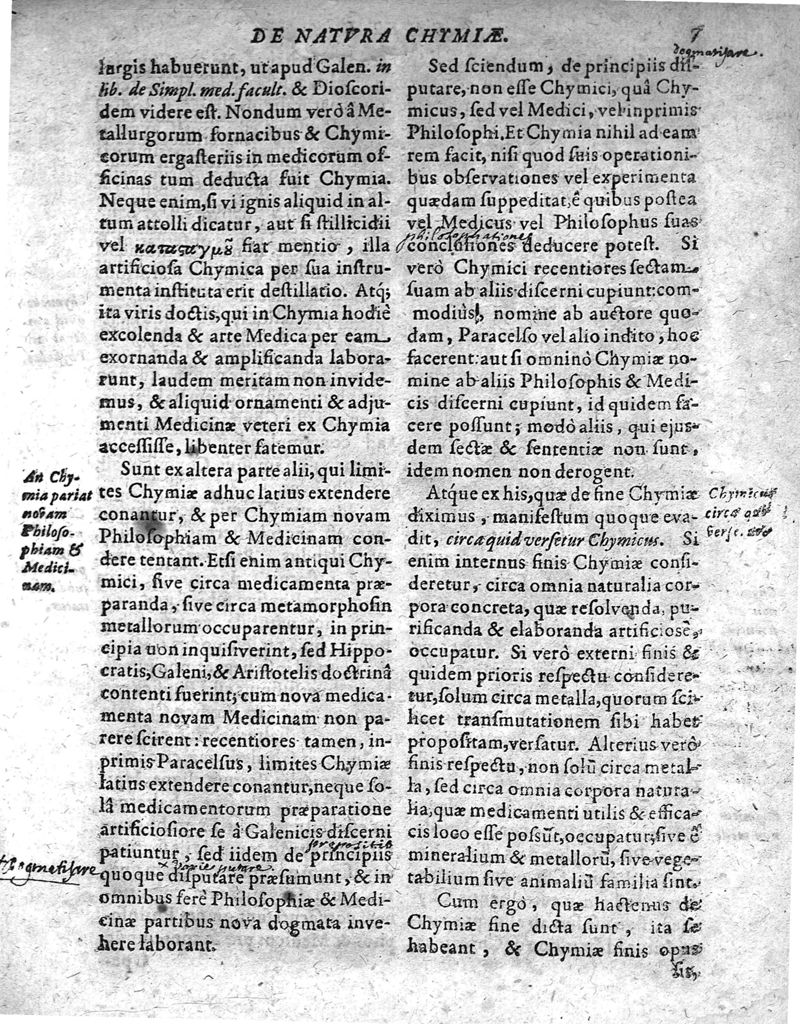 DE NATVRA CHYMIÆ. 7
dogmatisare.
largis habuerunt, ut apud Galen. in
lib. de Simpl. med. facult. & Dioscori-
dem videre est. Nondum verò â Me-
tallurgorum fornacibus & Chymi-
corum ergasteriis in medicorum of-
ficinas tum deducta fuit Chymia.
Neque enim, si vi ignis aliquid in al-
tum attolli dicatur, aut si stillicidii
vel fiat mentio, illa
artificiosa Chymica per sua instru-
menta instituta erit destillatio. Atq;
ita viris doctis, qui in Chymia hodiè
excolenda & arte Medica per eam
exornanda & amplificanda labora-
runt, laudem meritam non invide-
mus, & aliquid ornamenti & adju-
menti Medicinæ veteri ex Chymia
accessisse, libenter fatemur.
An Chy-
mia pariat
novam
Philoso-
phiam &
Medici-
nam.
Sunt ex altera parte alii, qui limi-
tes Chymiæ adhuc latius extendere
conantur, & per Chymiam novam
Philosophiam & Medicinam con-
dere tentant. Etsi enim antiqui Chy-
mici, sive circa medicamenta præ-
paranda, sive circa metamorphosin
metallorum occuparentur, in prin-
cipia non inquisiverint, sed Hippo-
cratis, Galeni, & Aristotelis doctrinâ
contenti fuerint; cum nova medica-
menta novam Medicinam non pa-
rere scirent: recentiores tamen, in-
primis Paracelsus, limites Chymiæ
latius extendere conantur, neque so-
lâ medicamentorum præparatione
artificiosiore se â Galenicis discerni
patiuntur, sed iidem de principiis
quoque disputare præsumunt, & in
omnibus ferè Philosophiæ & Medi-
cinæ partibus nova dogmata inve-
here laborant.
Dogmatisare
Sed sciendum, de principiis dis-
putare, non esse Chymici, quâ Chy-
micus, sed vel Medici, vel inprimis
Philosophi. Et Chymia nihil ad eam
rem facit, nisi quod suis operationi-
bus observationes vel experimenta
quædam suppeditat, ê quibus postea
vel Medicus vel Philosophus suas
philosophationes
conclusiones deducere potest. Si
verò Chymici recentiores sectam
suam ab aliis discerni cupiunt: com-
modius, nomine ab auctore quo-
dam, Paracelso vel alio indito, hoc
facerent: aut si omninò Chymiæ no-
mine ab aliis Philosophis & Medi-
cis discerni cupiunt, id quidem fa-
cere possunt; modò aliis, qui ejus-
dem sectæ & sententiæ non sunt,
idem nomen non derogent.
Atque ex his, quæ de fine Chymiæ
diximus, manifestum quoque eva-
dit, circa quid versetur Chymicus. Si
enim internus finis Chymiæ consi-
deretur, circa omnia naturalia cor-
pora concreta, quæ resolvenda, pu-
rificanda & elaboranda artificiosè,
occupatur. Si verò externi finis &
quidem prioris respectu considere-
tur, solum circa metalla, quorum sci-
licet transmutationem sibi habet
propositam, versatur. Alterius verò
finis respectu, non solũ circa metal-
la, sed circa omnia corpora natura-
lia, quæ medicamenti utilis & effica-
cis loco esse possũt, occupatur, sive ê
mineralium & metallorũ, sive vege-
tabilium sive animaliũ familia sint.
Cum ergò, quæ hactenus de
Chymiæ fine dicta sunt, ita se
habeant, & Chymiæ finis opus
Chymicus
circa